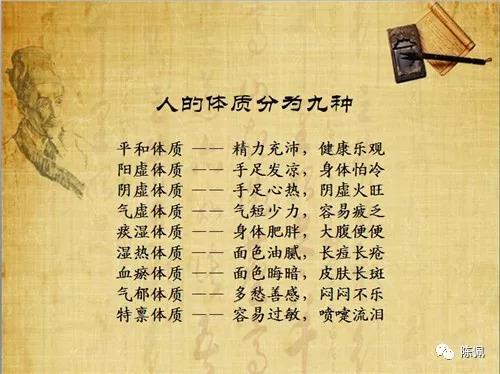 人的体质分为九种
平和体质 —— 精力充沛，健康乐观
阳虚体质 —— 手足发凉，身体怕冷
阴虚体质 —— 手足心热，阴虚火旺
气虚体质 —— 气短少力，容易疲乏
痰湿体质 —— 身体肥胖，大腹便便
湿热体质 —— 面色油腻，长痘长疮
血瘀体质 —— 面色晦暗，皮肤长斑
气郁体质 —— 多愁善感，闷闷不乐
特禀体质 —— 容易过敏，喷嚏流泪
陈佩